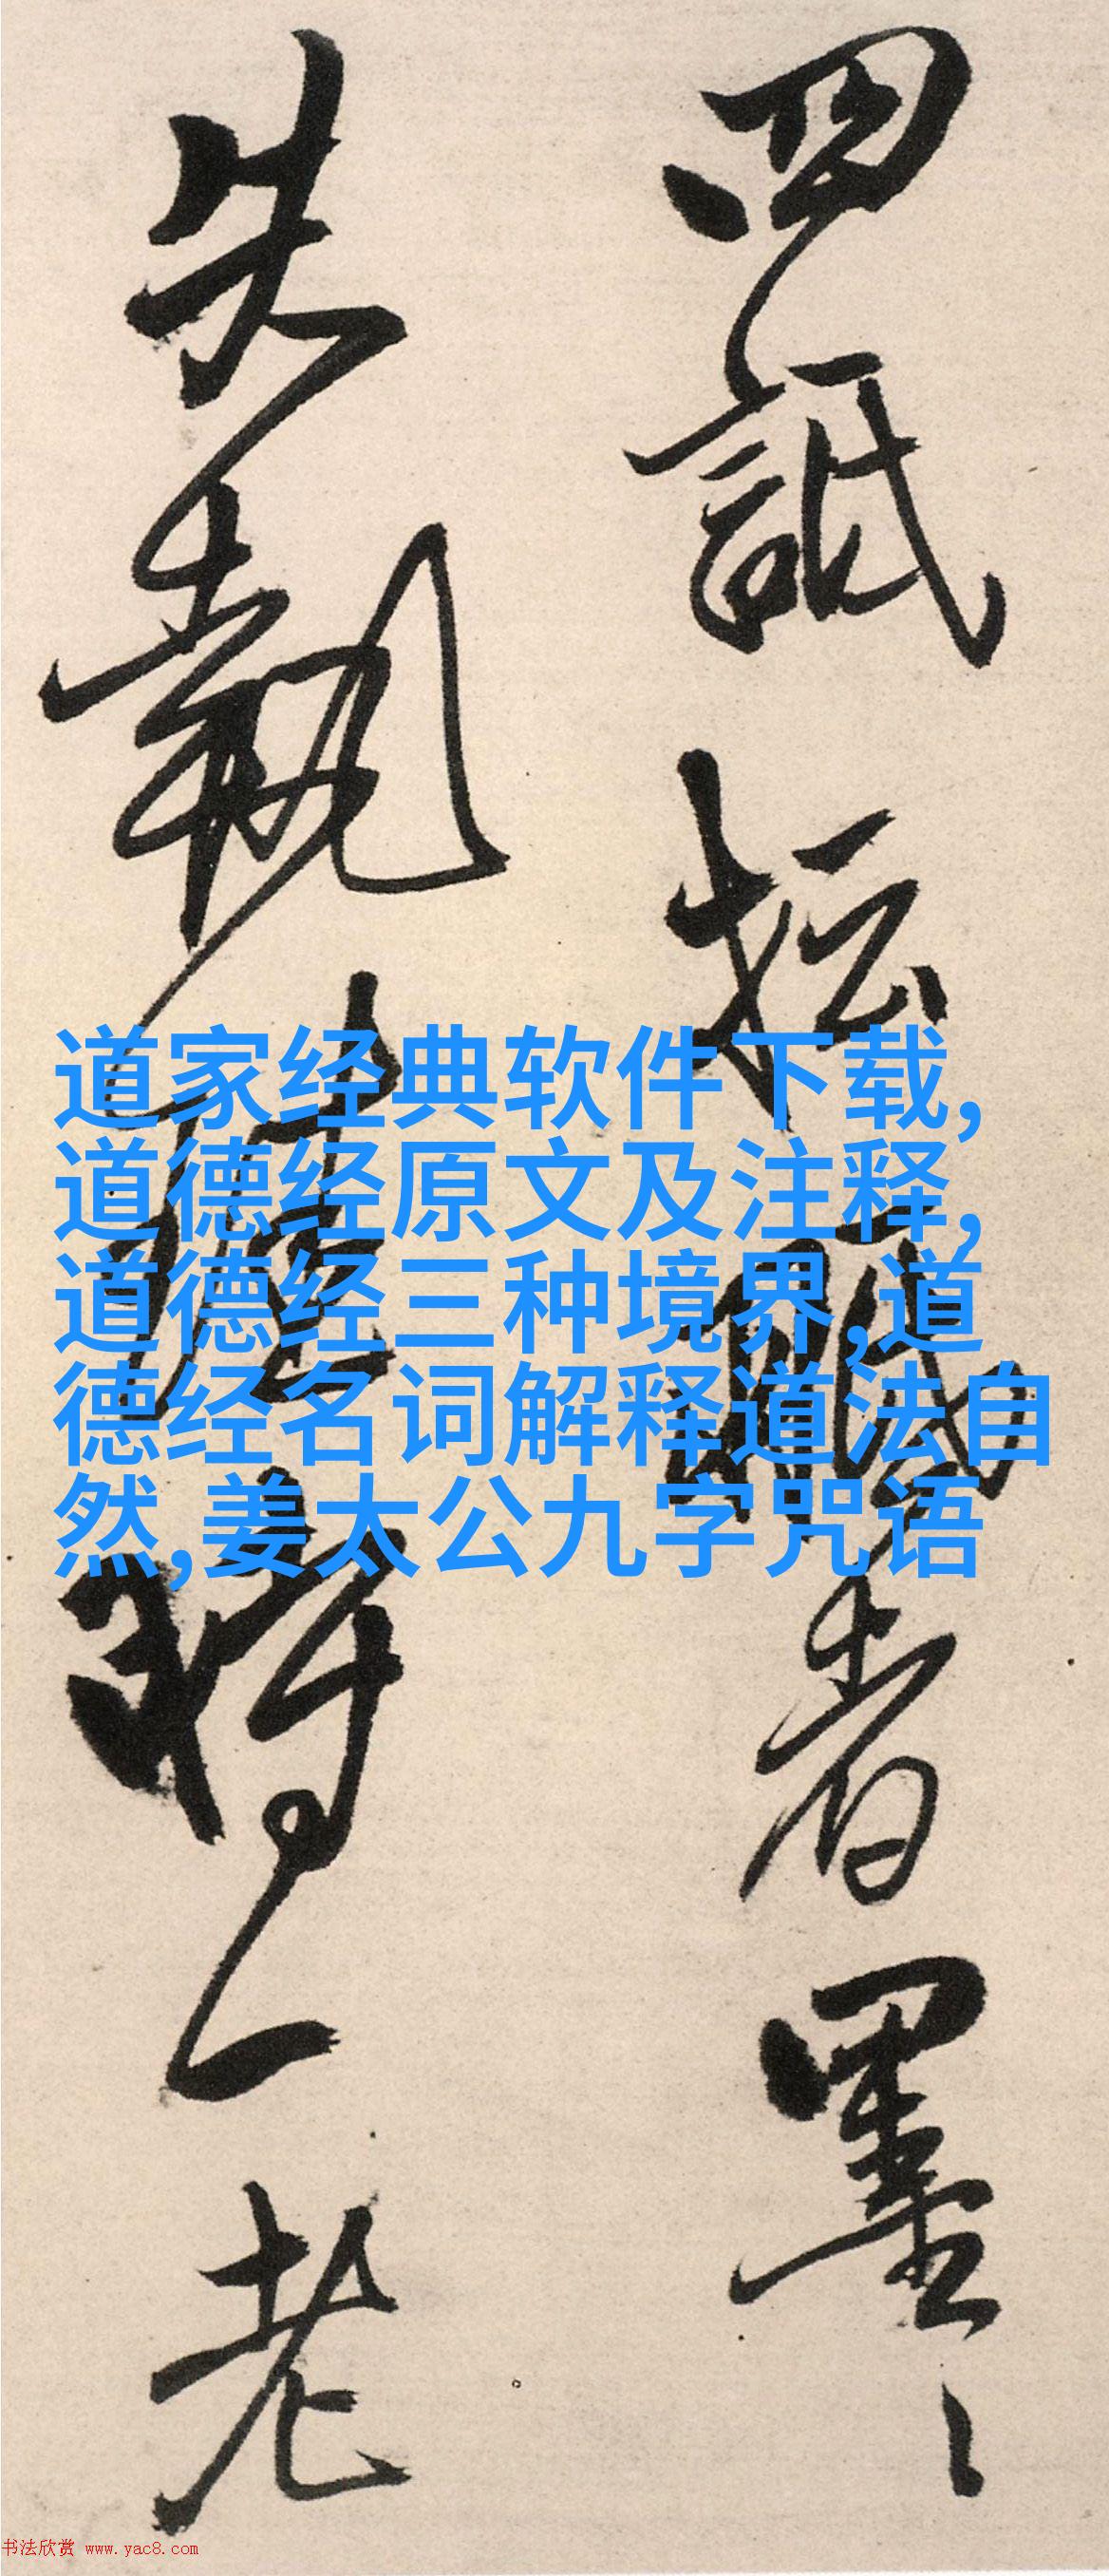 道家经典软件下载,
道德经原文及注释,
道德经三种境界,道
德经名词解释道法自
然,姜太公九字咒语
者墨
失執
將一老
书法欣赏 www.yac8.com